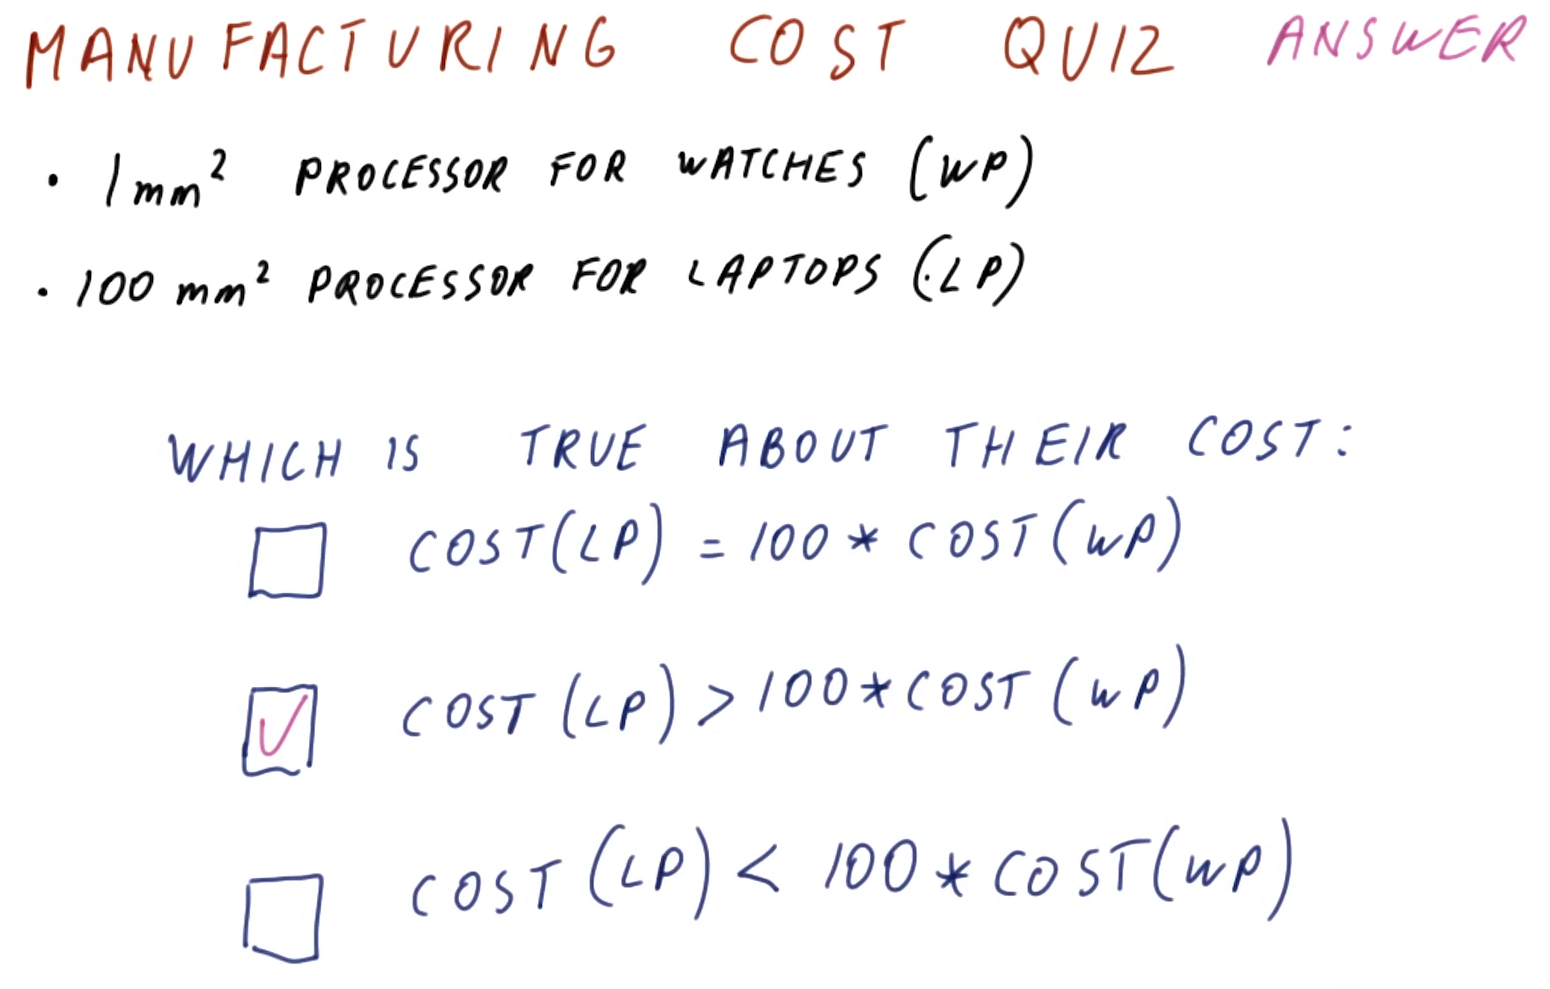 MANUFACTURING COST QUIZ ANSWER
• 1mm² PROCESSOR FOR WATCHES (WP)
• 100 mm² PROCESSOR FOR LAPTOPS (LP)
WHICH IS TRUE ABOUT THEIR COST:
COST(LP) = 100 * COST(WP)
COST (LP) > 100*COST (WP)
COST (LP) < 100 * COST(WP)